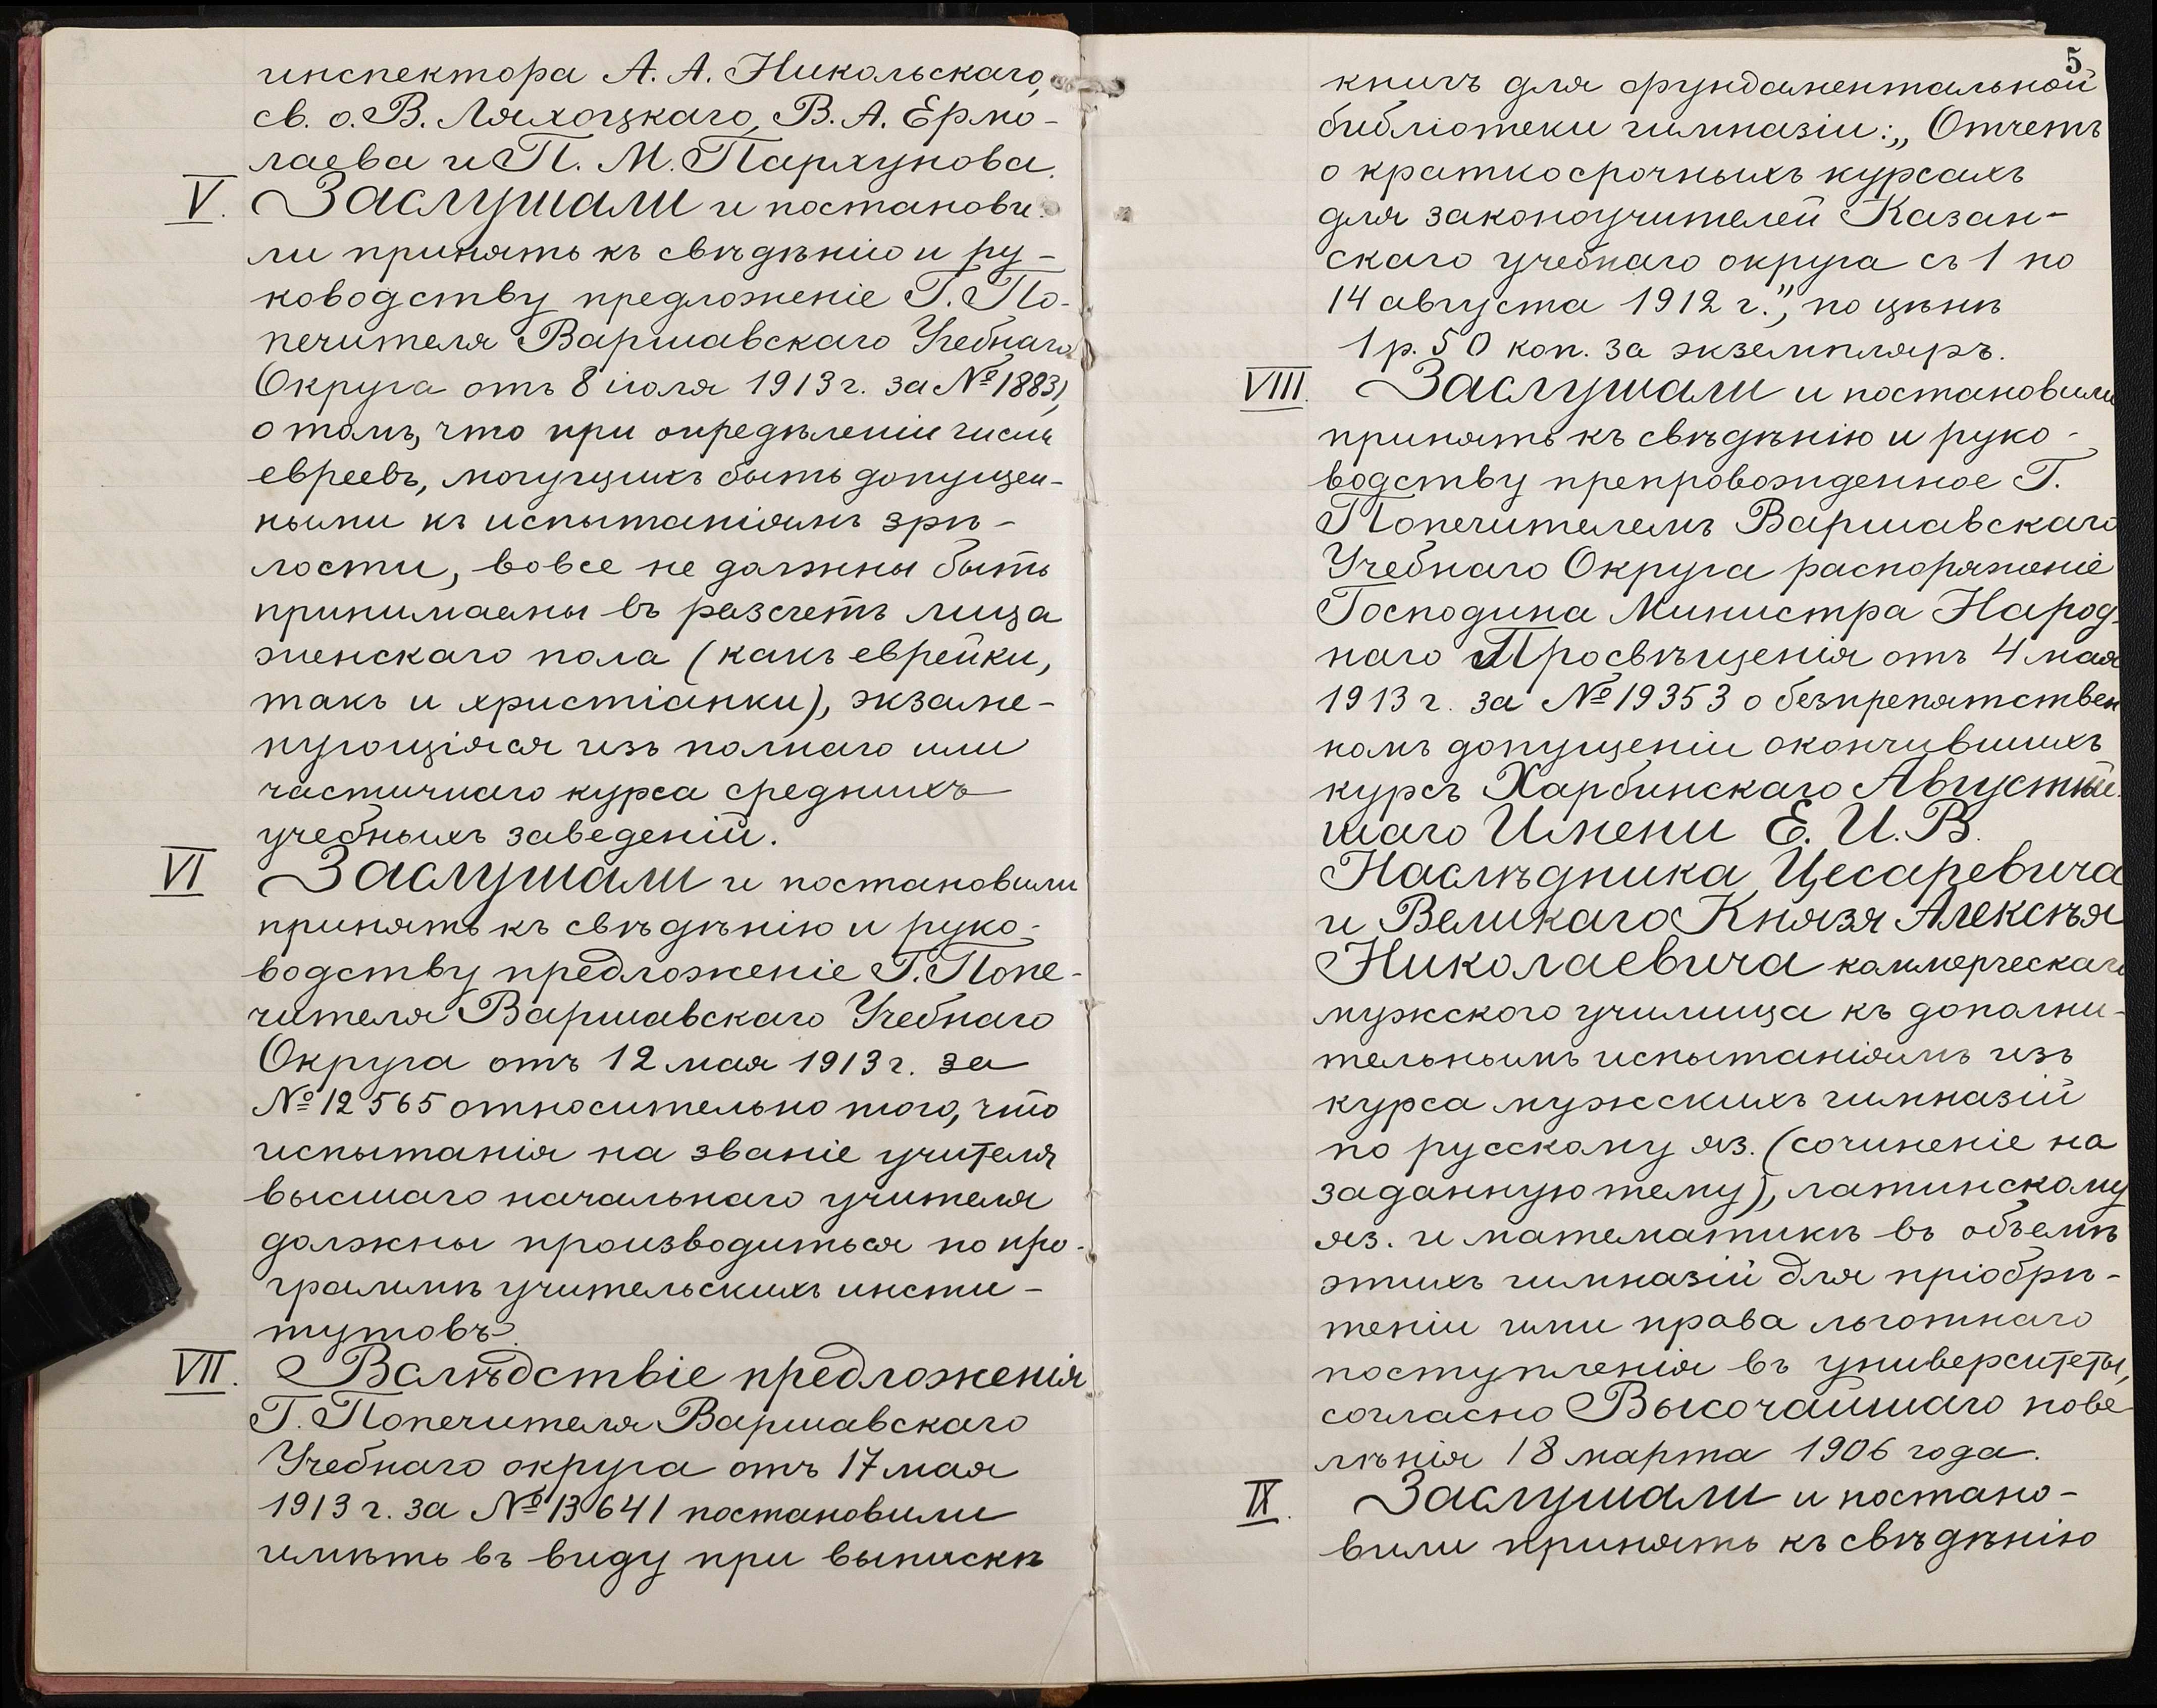 инспектора А. А. Никольскаго,
св. о. В. Ляхоцкаго, В. А. Ермо-
лаева и П. М. Пархунова.
V. Заслушали и постанови-
ли принять къ свѣдѣнію и ру-
ководству предложеніе Г. По-
печителя Варшавскаго Учебнаго
Округа отъ 8 іюля 1913 г. за № 18831,
о томъ, что при опредѣленіи числа
евреевъ, могущихъ быть допущен-
ными къ испытаніямъ зрѣ-
лости, вовсе не должны быть
принимаемы въ разсчетъ лица
женскаго пола (какъ еврейки,
такъ и христіанки), экзаме-
нующіяся изъ полнаго или
частичнаго курса среднихъ
учебныхъ заведеній.
VI Заслушали и постановили
принять къ свѣдѣнію и руко-
водству предложеніе Г. Попе-
чителя Варшавскаго Учебнаго
Округа отъ 12 мая 1913 г. за
№ 12565 относительно того, что
испытанія на званіе учителя
высшаго начальнаго учителя
должны производиться по про-
граммѣ учительскихъ инсти-
тутовъ.
VII. Вслѣдствіе предложенія
Г. Попечителя Варшавскаго
Учебнаго округа отъ 17 мая
1913 г. за № 13641 постановили
имѣть въ виду при выпискѣ
5
книгъ для фундаментальной
библіотеки гимназіи: „Отчетъ
о краткосрочныхъ курсахъ
для законоучителей Казан-
скаго учебнаго округа съ 1 по
14 августа 1912 г.", по цѣнѣ
1 р. 50 коп. за экземпляръ.
VIII. Заслушали и постановили
принять къ свѣдѣнію и руко-
водству препровожденное Г.
Попечителемъ Варшавскаго
Учебнаго Округа распоряженіе
Господина Министра Народ-
наго Просвѣщенія отъ 4 мая
1913 г. за № 19353 о безпрепятствен
номъ допущеніи окончившихъ
курсъ Харбинскаго Августѣй-
шаго Имени Е. И. В.
Наслѣдника Цесаревича
и Великаго Князя Алексѣя
Николаевича коммерческаго
мужского училища къ дополни-
тельнымъ испытаніямъ изъ
курса мужскихъ гимназій
по русскому яз. (сочиненіе на
заданную тему), латинскому
яз. и математикѣ въ объемѣ
этихъ гимназій для пріобрѣ-
теніи ими права льготнаго
поступленія въ университеты,
согласно Высочайшаго пове-
лѣнія 18 марта 1906 года.
IX. Заслушали и постано-
вили принять къ свѣдѣнію